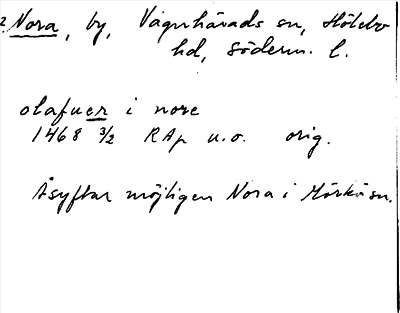 2. Nora, by, Vagnhärads sn, Hölebo
hd, Söderm. l.
olafuer i nore
1468 3/2 RAp u.o. orig.
Åsyftar möjligen Nora i Mörkö sn.